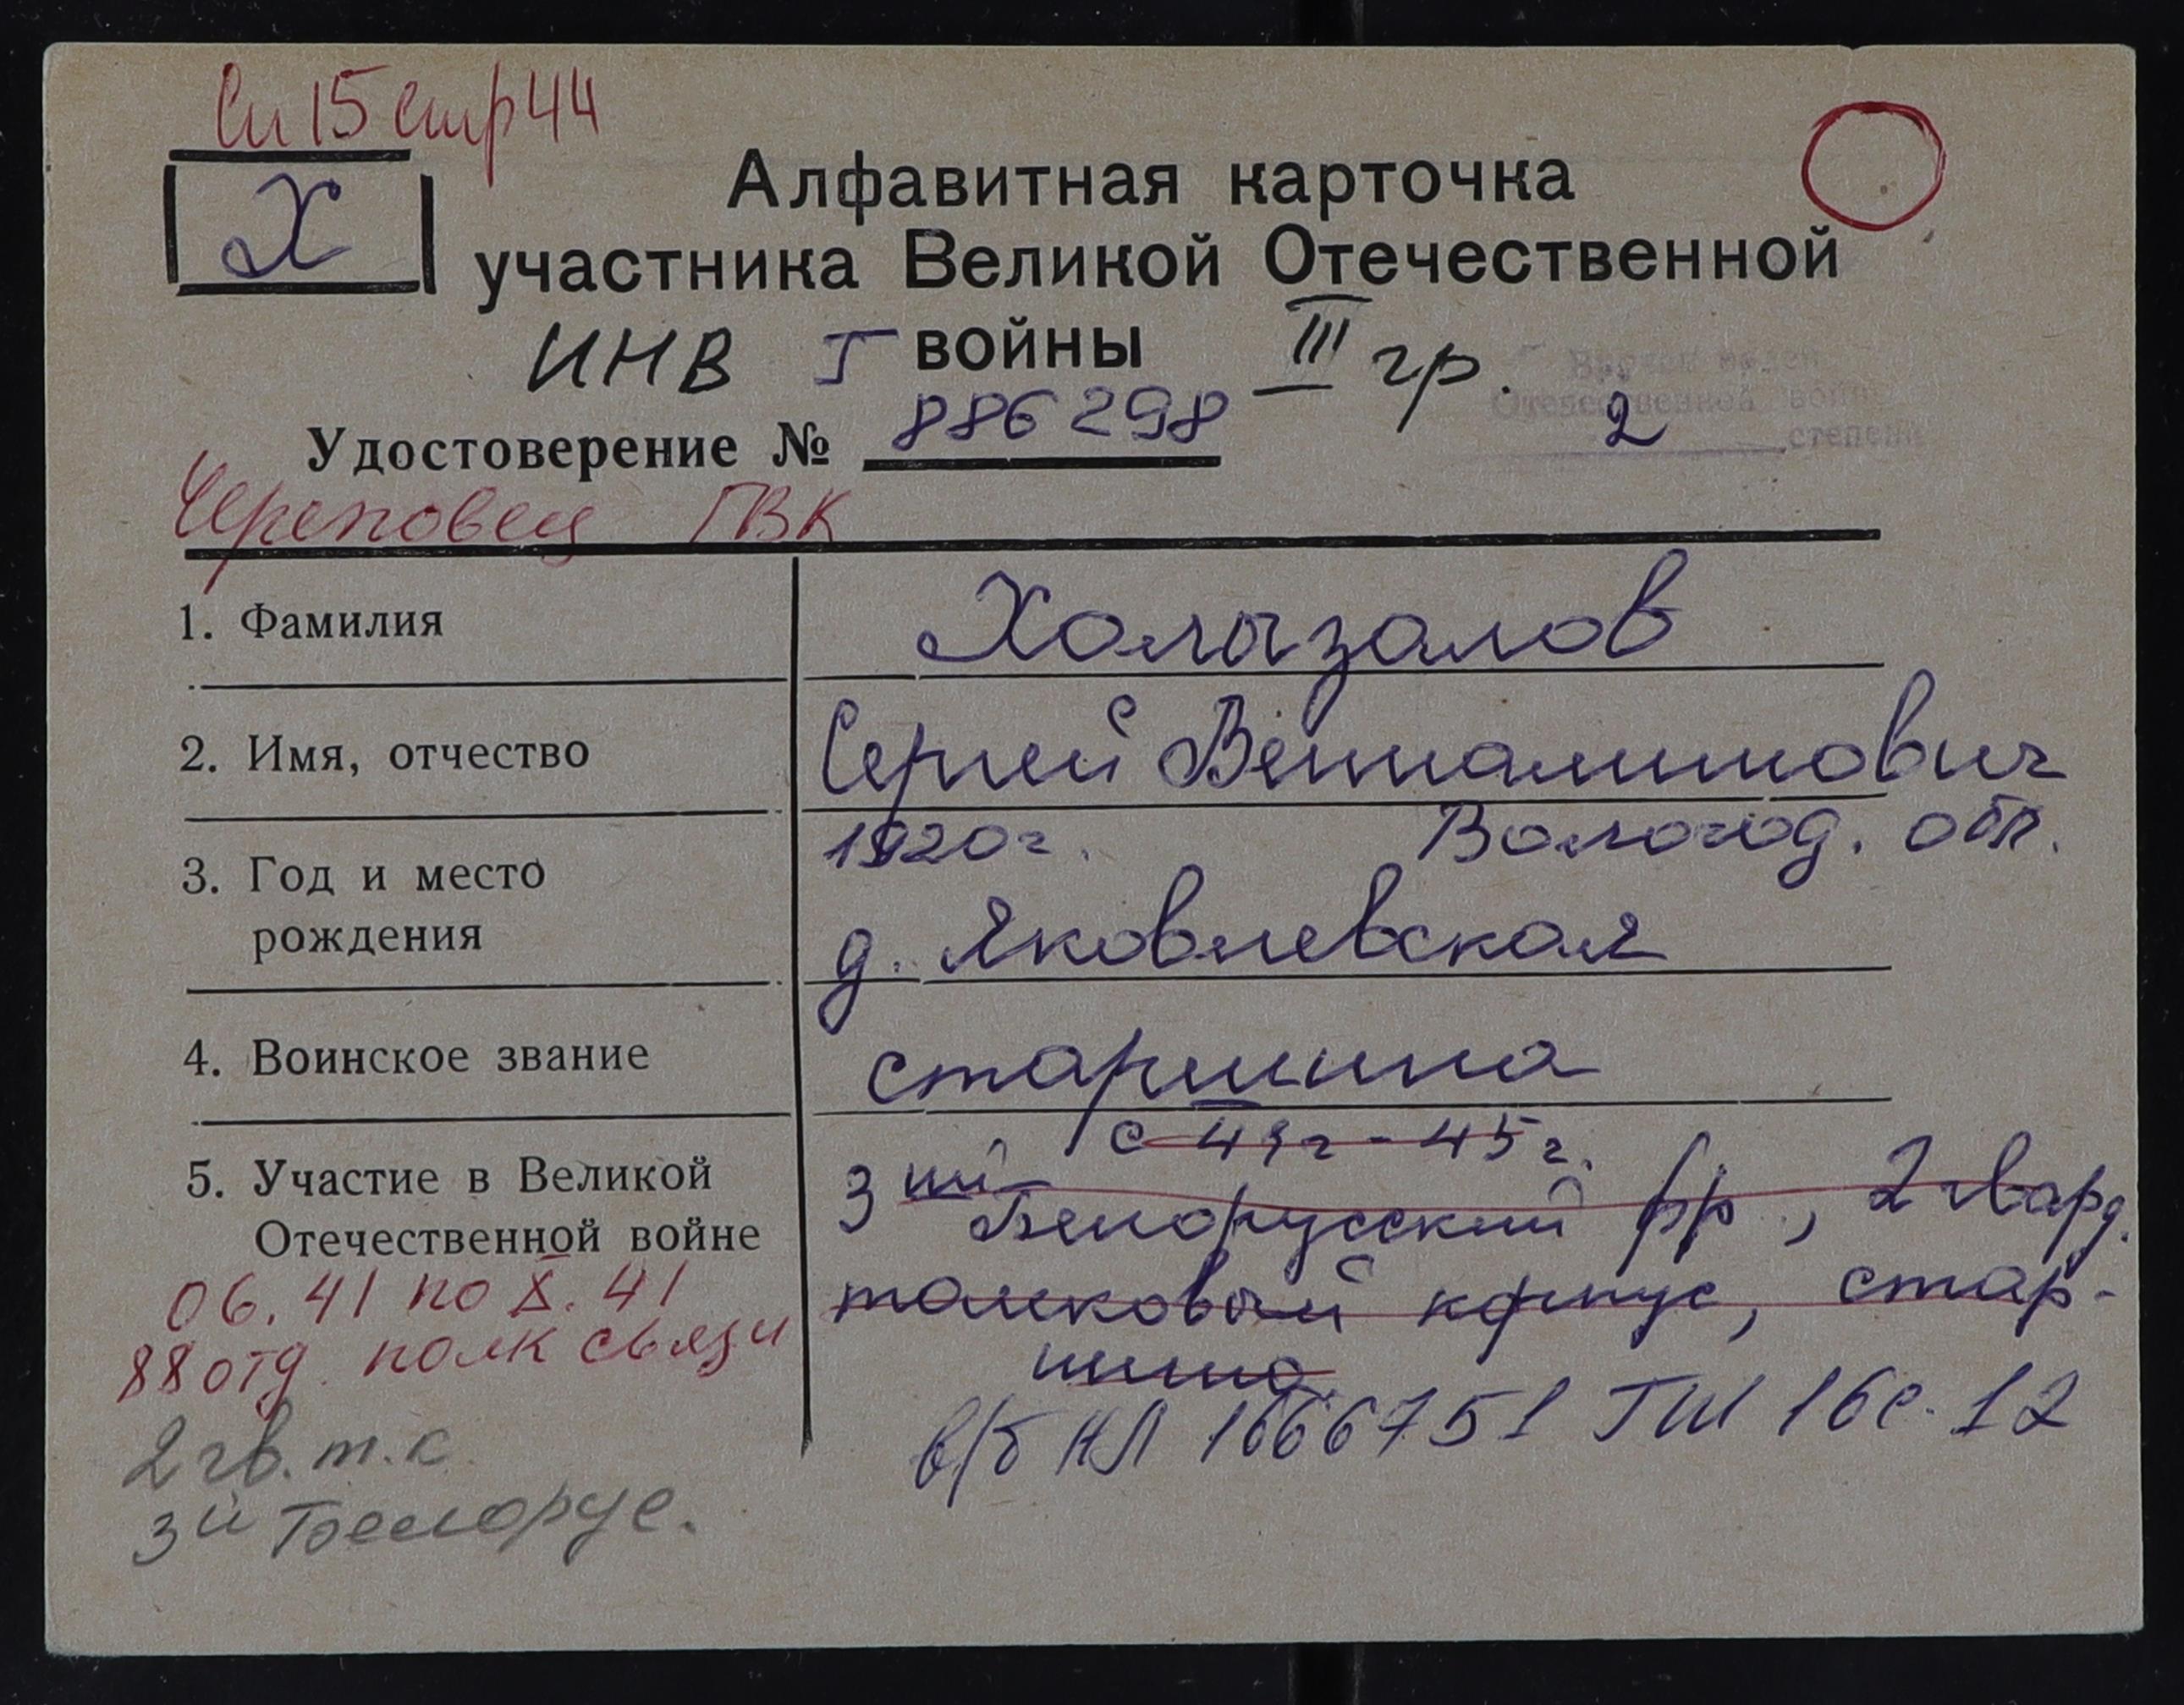 Сп 15 стр 44
Х
Алфавитная карточка
участника Великой Отечественной
ИНВ I войны III гр.
Отечественной войны
2 степени
Удостоверение № 886298
Череповец ГВК
1. Фамилия Холызалов
2. Имя, отчество Сергей Вениаминович
3. Год и место рождения 1920г. Вологод. обл.
д. Яковлевская
4. Воинское звание старшина
5. Участие в Великой Отечественной войне с 41г - 45г.
3ий Белорусский фр, 2 гвард.
танковый корпус, стар-
шина
в/б НЛ 1666751 ГШ 16с. 12
06.41 по X.41
88 отд. полк связи
2 гв. т. к
3й Белорус.